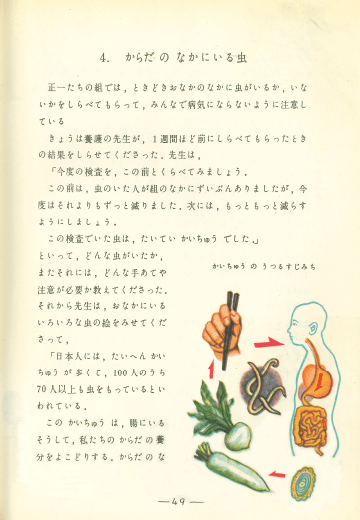 4. からだ の なかにいる虫
正一たちの組では，ときどきおなかのなかに虫がいるか，いな
いかをしらべてもらって，みんなで病気にならないように注意し
ている
きょうは養護の先生が，1週間ほど前にしらべてもらったとき
の結果をしらせてくださった．先生は，
「今度の検査を，この前とくらべてみましょう．
この前は，虫のいた人が組のなかにずいぶんありましたが，今
度はそれよりもずっと減りました．次には，もっともっと減らす
ようにしましょう．
この検査でいた虫は，たいてい かいちゅう でした。」
といって，どんな虫がいたか，
またそれには，どんな手あてや
注意が必要か教えてくださった．
それから先生は，おなかにいる
いろいろな虫の絵をみせてくだ
さって，
「日本人には，たいへん かい
ちゅう が 多くて，100人のうち
70人以上も虫をもっているとい
われている．
この かいちゅう は，腸にいる
そうして，私たちの からだ の 養
分をよこどりする．からだ の な
かいちゅう の うつるすじみち
—49—